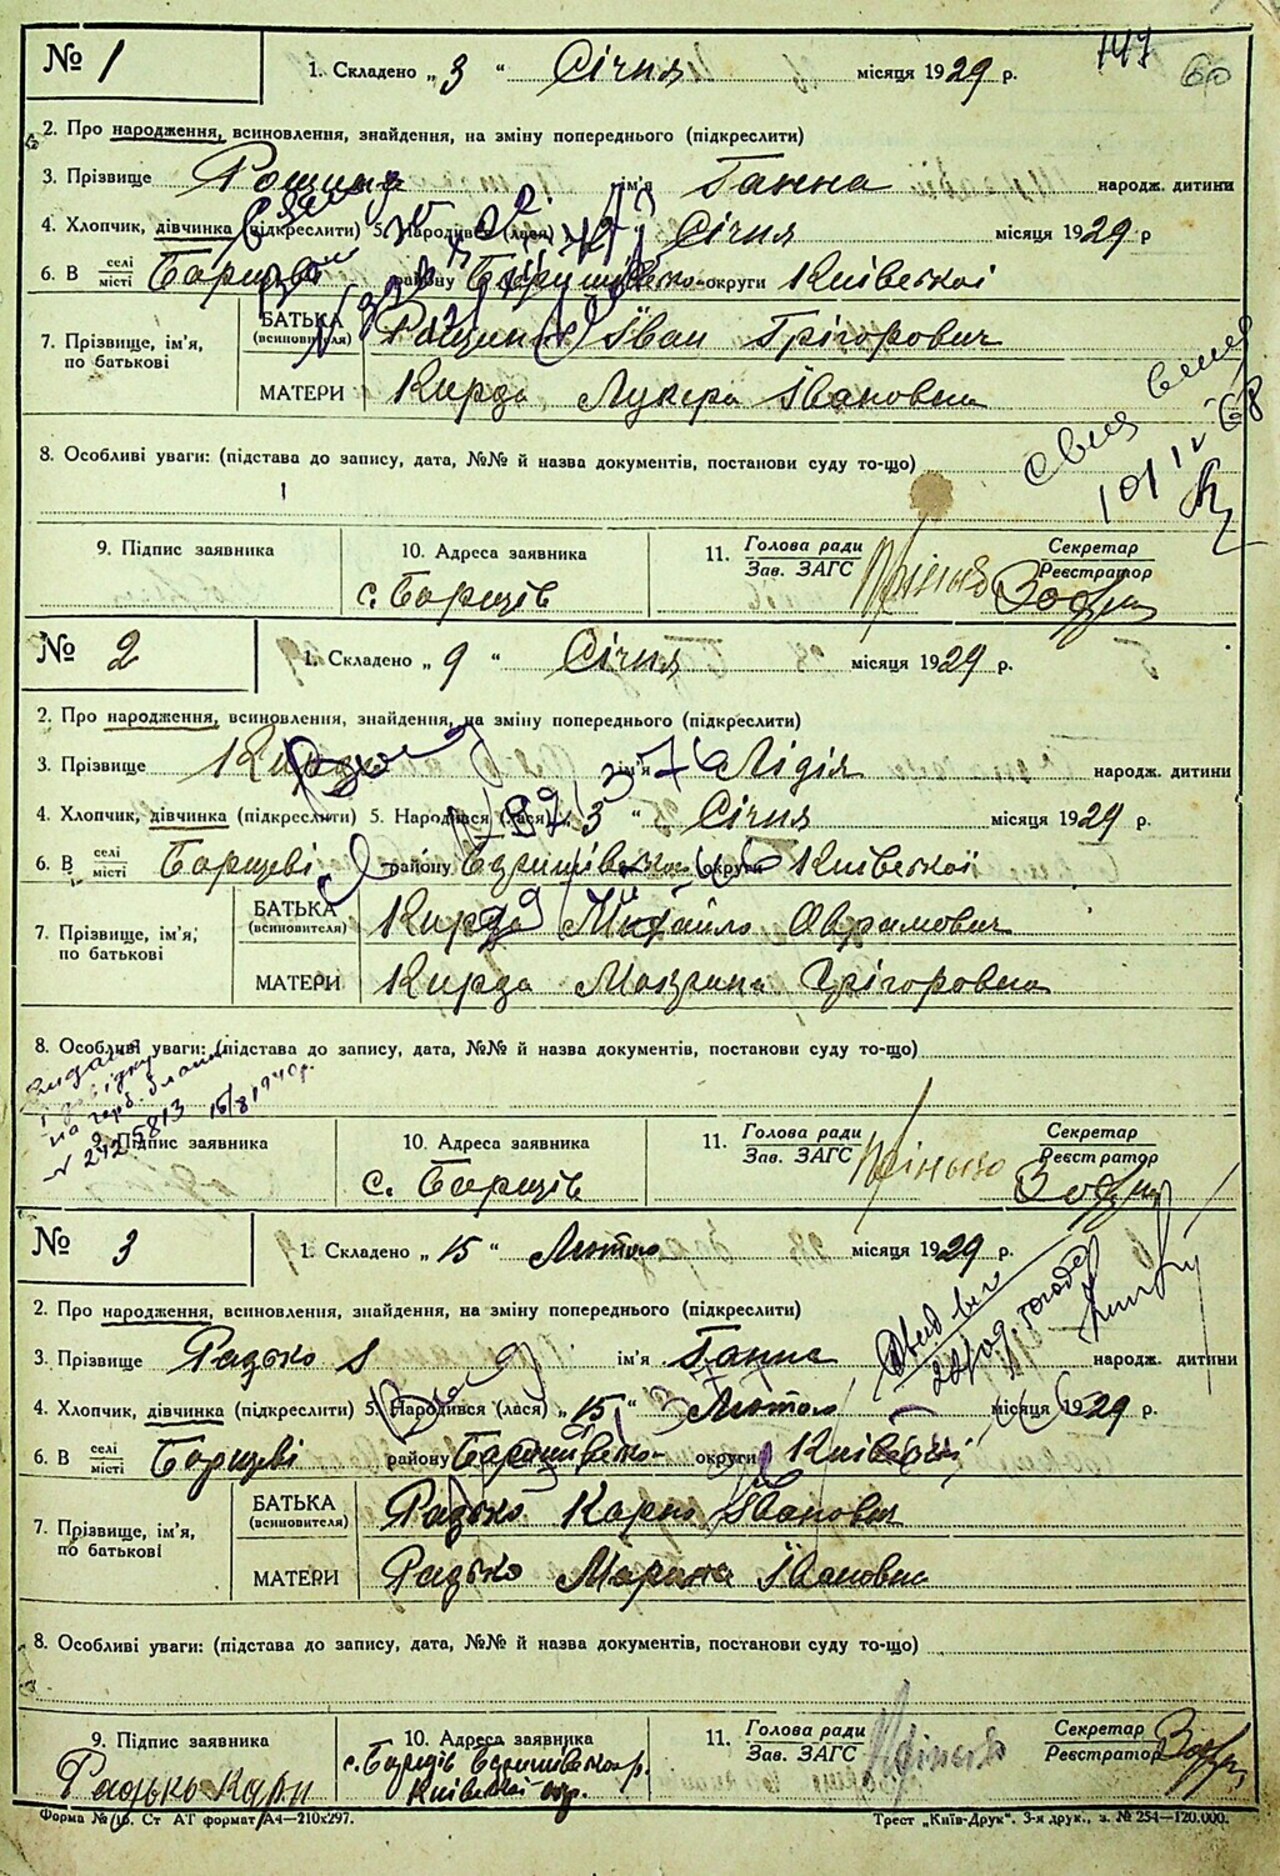 147
60
№ 1
1. Складено „ 3 “ Січня місяця 1929 р.
2. Про народження, всиновлення, знайдення, на зміну попереднього (підкреслити)
3. Прізвище Рощина ім'я Ганна народж. дитини
4. Хлопчик, дівчинка (підкреслити) 5. Народився (лася) „ 2 “ Січня місяця 1929 р
6. В селі місті Борщеві району Баришівсько- округи Київської
7. Прізвище, ім'я, по батькові
БАТЬКА (всиновителя) Рощин Іван Грігорович
МАТЕРИ Кирда Лукера Івановна
8. Особливі уваги: (підстава до запису, дата, №№ й назва документів, постанови суду то-що)
9. Підпис заявника
10. Адреса заявника
с. Борщів
11. Голова ради Зав. ЗАГС
Секретар Реєстратор
№ 2
1. Складено „ 9 “ Січня місяця 1929 р.
2. Про народження, всиновлення, знайдення, на зміну попереднього (підкреслити)
3. Прізвище Кирда ім'я Лідія народж. дитини
4. Хлопчик, дівчинка (підкреслити) 5. Народився (лася) „ 3 “ Січня місяця 1929 р.
6. В селі місті Борщеві району Баришівської округи Київської
7. Прізвище, ім'я, по батькові
БАТЬКА (всиновителя) Кирда Михайло Оврамович
МАТЕРИ Кирда Мокрина Грігоровна
8. Особливі уваги: (підстава до запису, дата, №№ й назва документів, постанови суду то-що)
на герб. бланку
15/8 1940р.
9. Підпис заявника
10. Адреса заявника
с. Борщів
11. Голова ради Зав. ЗАГС
Секретар Реєстратор
№ 3
1. Складено „ 15 “ Лютого місяця 1929 р.
2. Про народження, всиновлення, знайдення, на зміну попереднього (підкреслити)
3. Прізвище Радько ім'я Ганна народж. дитини
4. Хлопчик, дівчинка (підкреслити) 5. Народився (лася) „ 15 “ Лютого місяця 1929 р.
6. В селі місті Борщеві району Баришівсько- округи Київської
7. Прізвище, ім'я, по батькові
БАТЬКА (всиновителя) Радько Карпо Іванович
МАТЕРИ Радько Марина Івановна
8. Особливі уваги: (підстава до запису, дата, №№ й назва документів, постанови суду то-що)
9. Підпис заявника
Радько Карп
10. Адреса заявника
с. Борщів Баришівсько р.
Київської окр.
11. Голова ради Зав. ЗАГС
Секретар Реєстратор
Форма № 6. Ст АТ формат А4—210х297.
Трест „Київ-Друк“. 3-я друк., з. № 254—120.000.